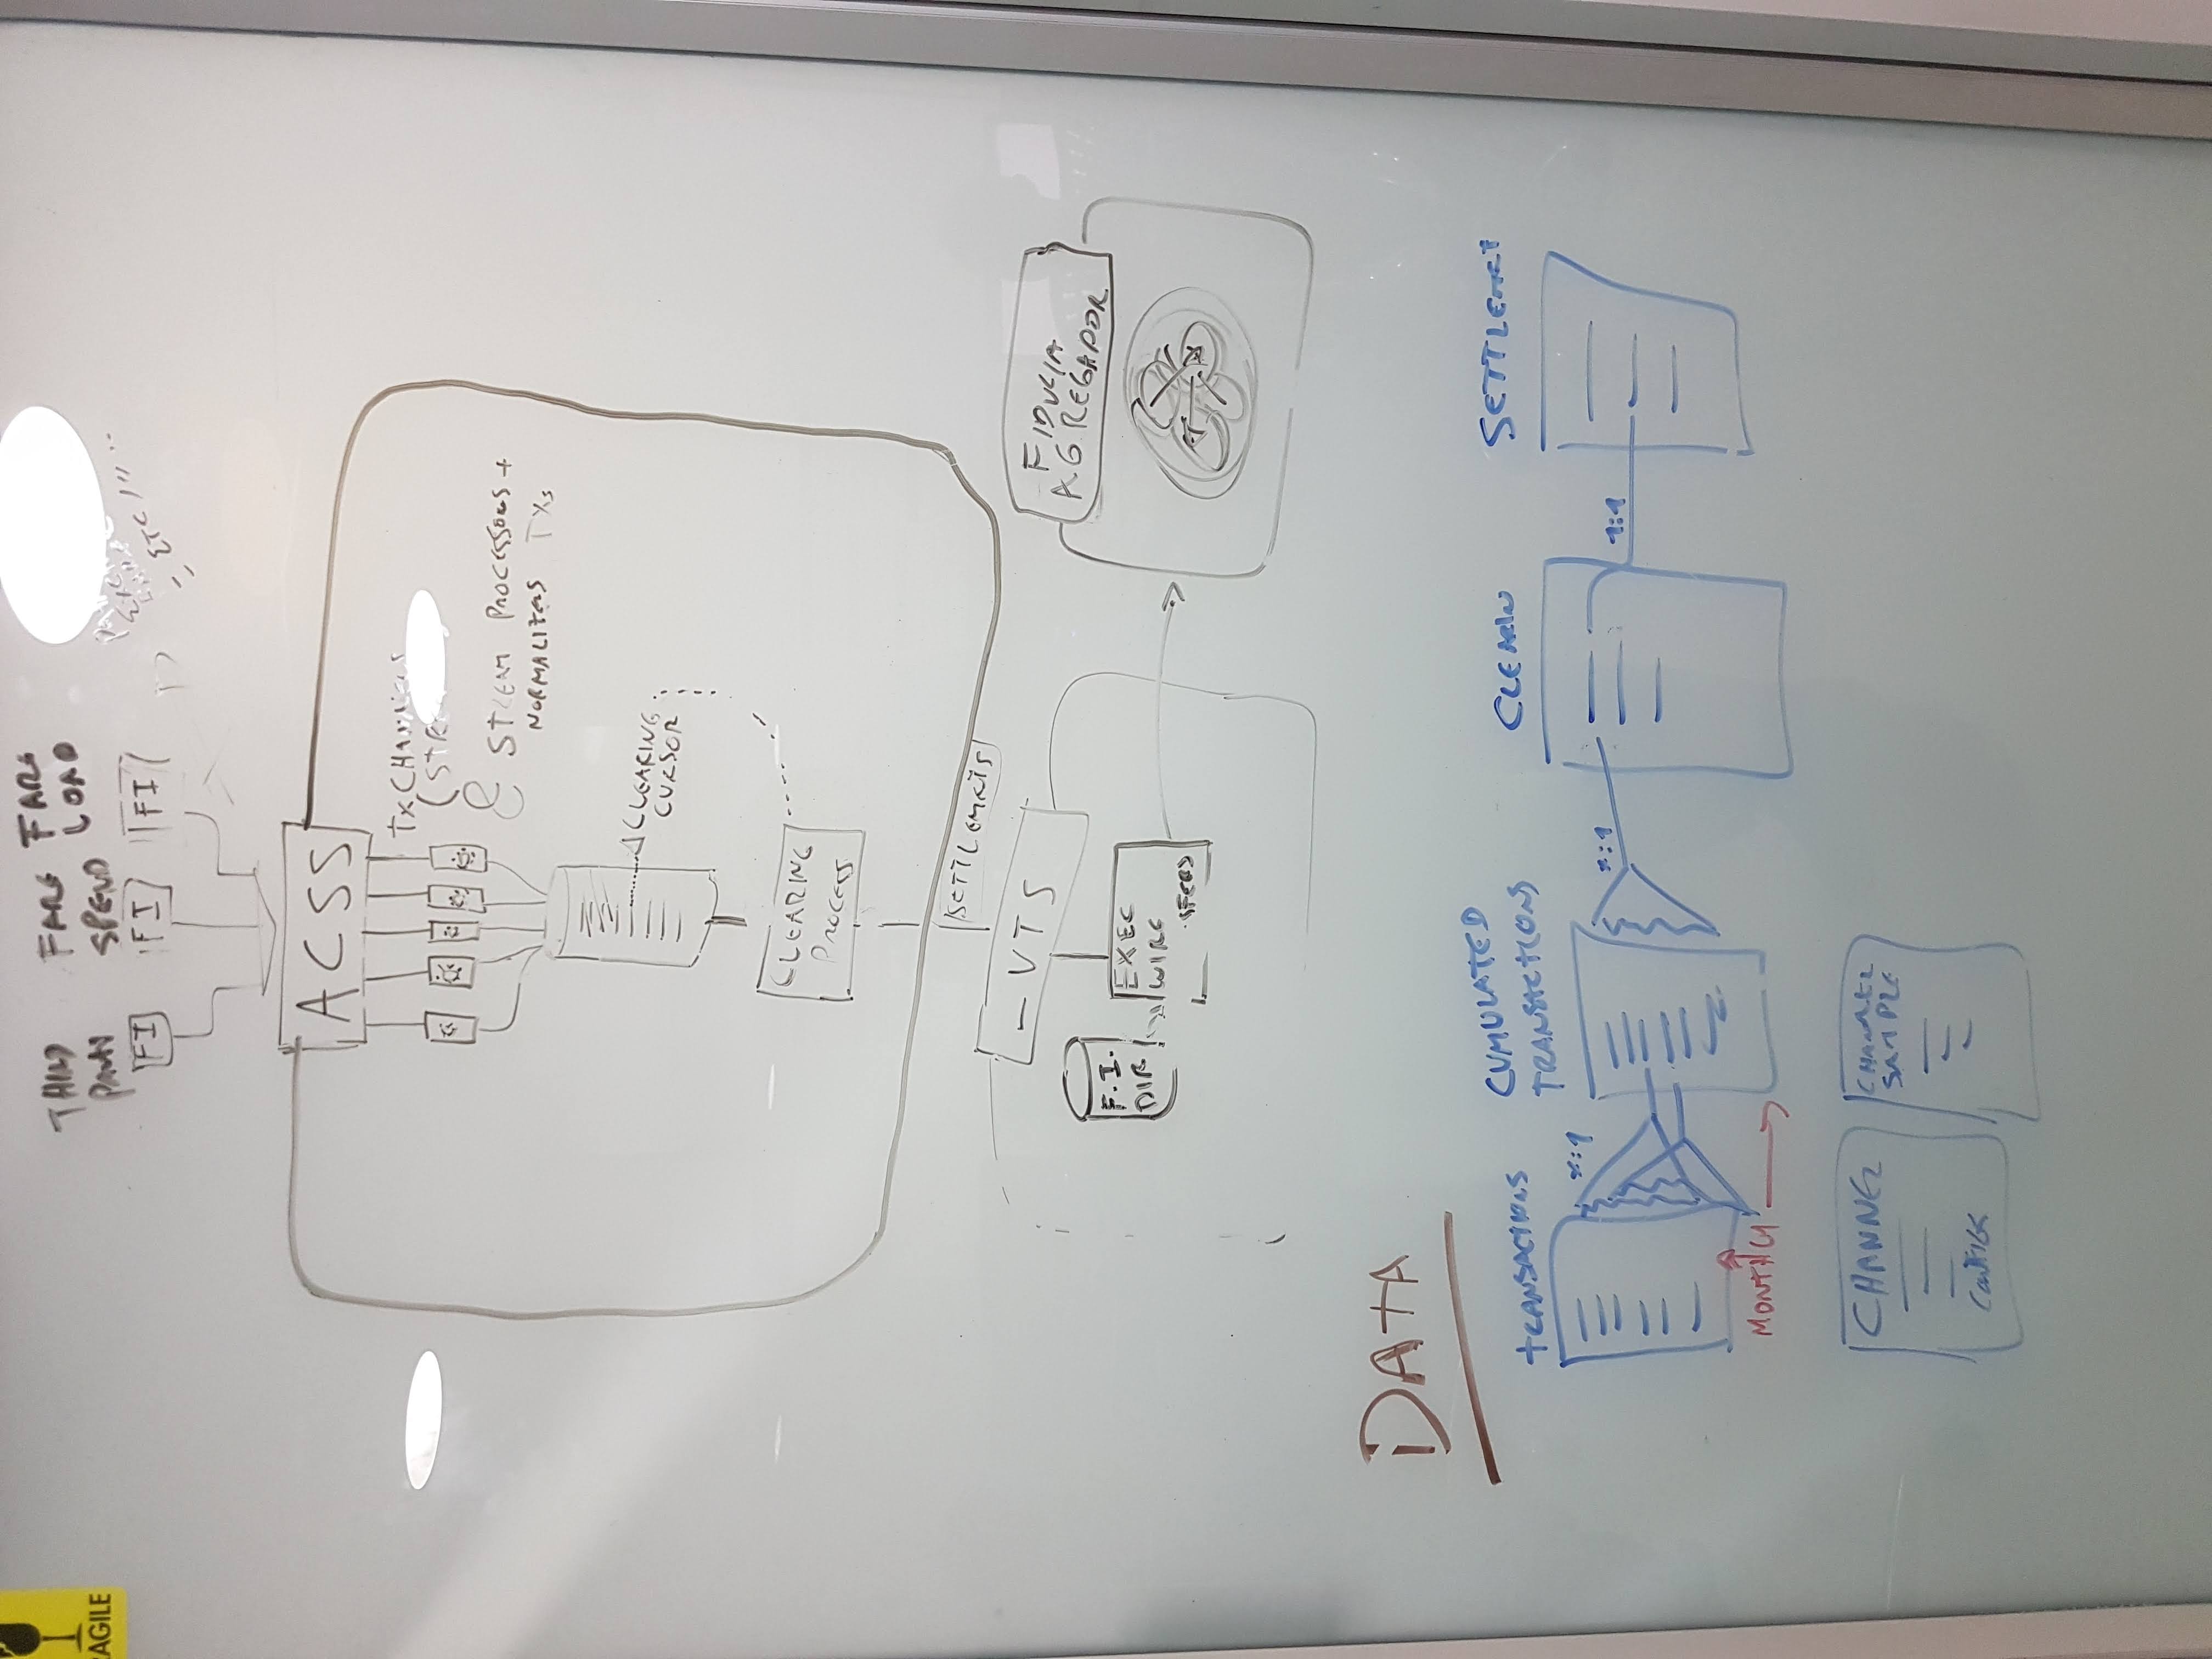 RAGILE
THIRD
PARTY
FARE
SPEND
FARE
LOAD
FI
FI
FI
ETC
ACSS
TX CHANNELS
STREAM PROCESSORS +
NORMALIZERS TXs
CLEARING
CURSOR
CLEARING
PROCESS
SETTLEMENTS
VTS
F.I.
DIR
EXEC
WIRE
FIDUCIA
AGREGADOR
DATA
TRANSACTIONS
CUMULATED
TRANSACTIONS
CLEARIN
SETTLEMENT
*:1
*:1
1:1
MONTHLY
CHANNEL
CONFIGS
CHANNEL
SAMPLE